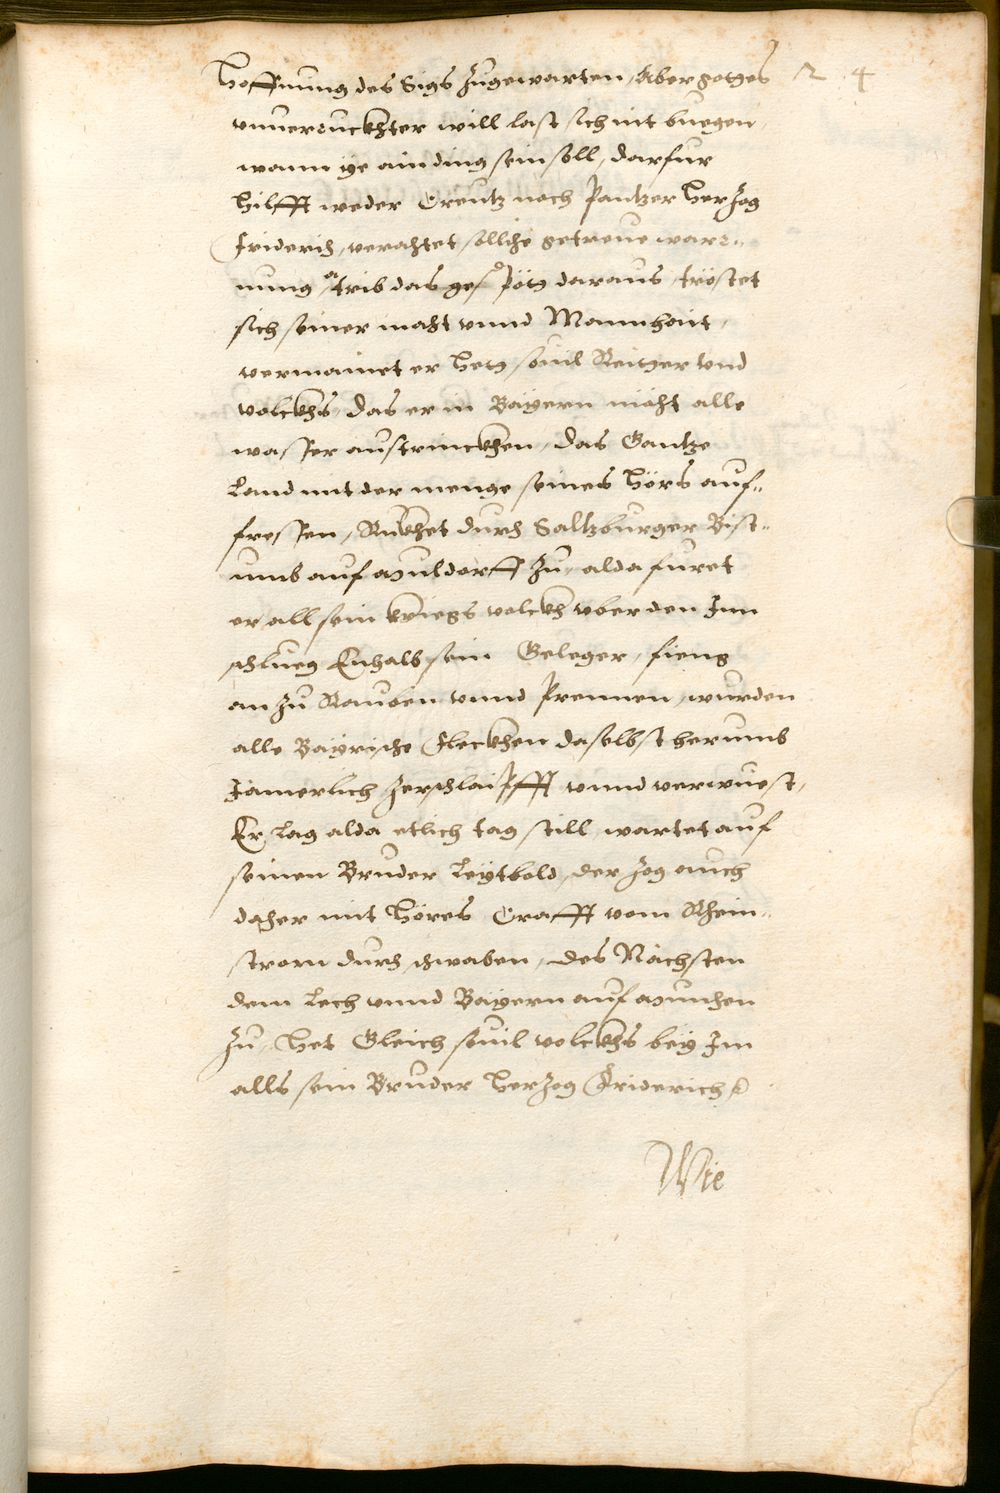 Hoffnung des Sigs zugewarten, Aber gotes 24
vnuerruckhter will last sich nit buegen,
wann ye ain ding sein soll, darfur
hilfft weder Creutz noch Pantzer Herzog
Friderich, verachtet, solliche getreue ware-
nung, trib das gespöt daraus, tröstet
sich seiner macht vnnd Mannhait,
vermainet er het souil Reitger vnd
volckhs, das er in Bayern möcht alle
wasser austrinckhen, das Gantze
Land mit der menge seines Hörs auf-
fressen, Rukhet durch Saltzburger Bist-
umb auf Muldorff zu, alda furet
er all sein kriegs volckh vber den Inn
schlueg Enhalb sein Geleger, fieng
an zu Rauben vnnd Prennen, wurden
alle Bayrische Fleckhen daselbst herumb
Jamerlich zerschlaipfft vnnd verwuest,
Er Lag alda etlich tag still wartet auf
seinen Bruder Leytbold, der zog auch
daher mit Höres Crafft vom Rhein-
strom durch schwaben, des Nächsten
dem Lech vnnd Bayern auf Munchen
zu, Het Gleich souil volckhs bey Im
alls sein Bruder Herzog Friderich
Wie